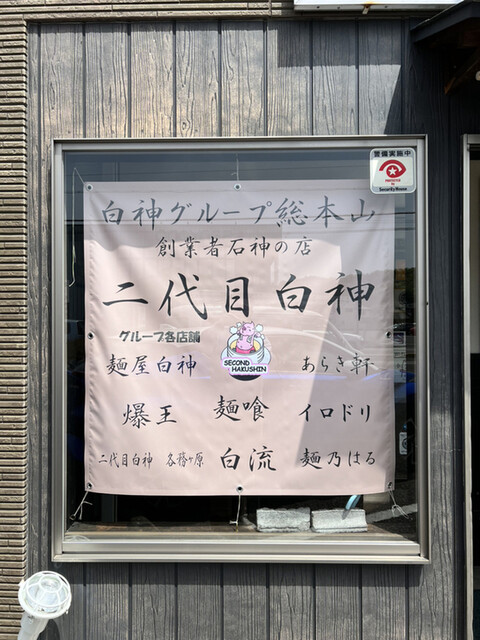 警備実施中
Security House
白神グループ総本山
創業者石神の店
二代目白神
グループ各店舗
SECOND
HAKUSHIN
麺屋白神
あらき軒
爆王
麺喰
イロドリ
二代目白神 各務ヶ原
白流
麺乃はる